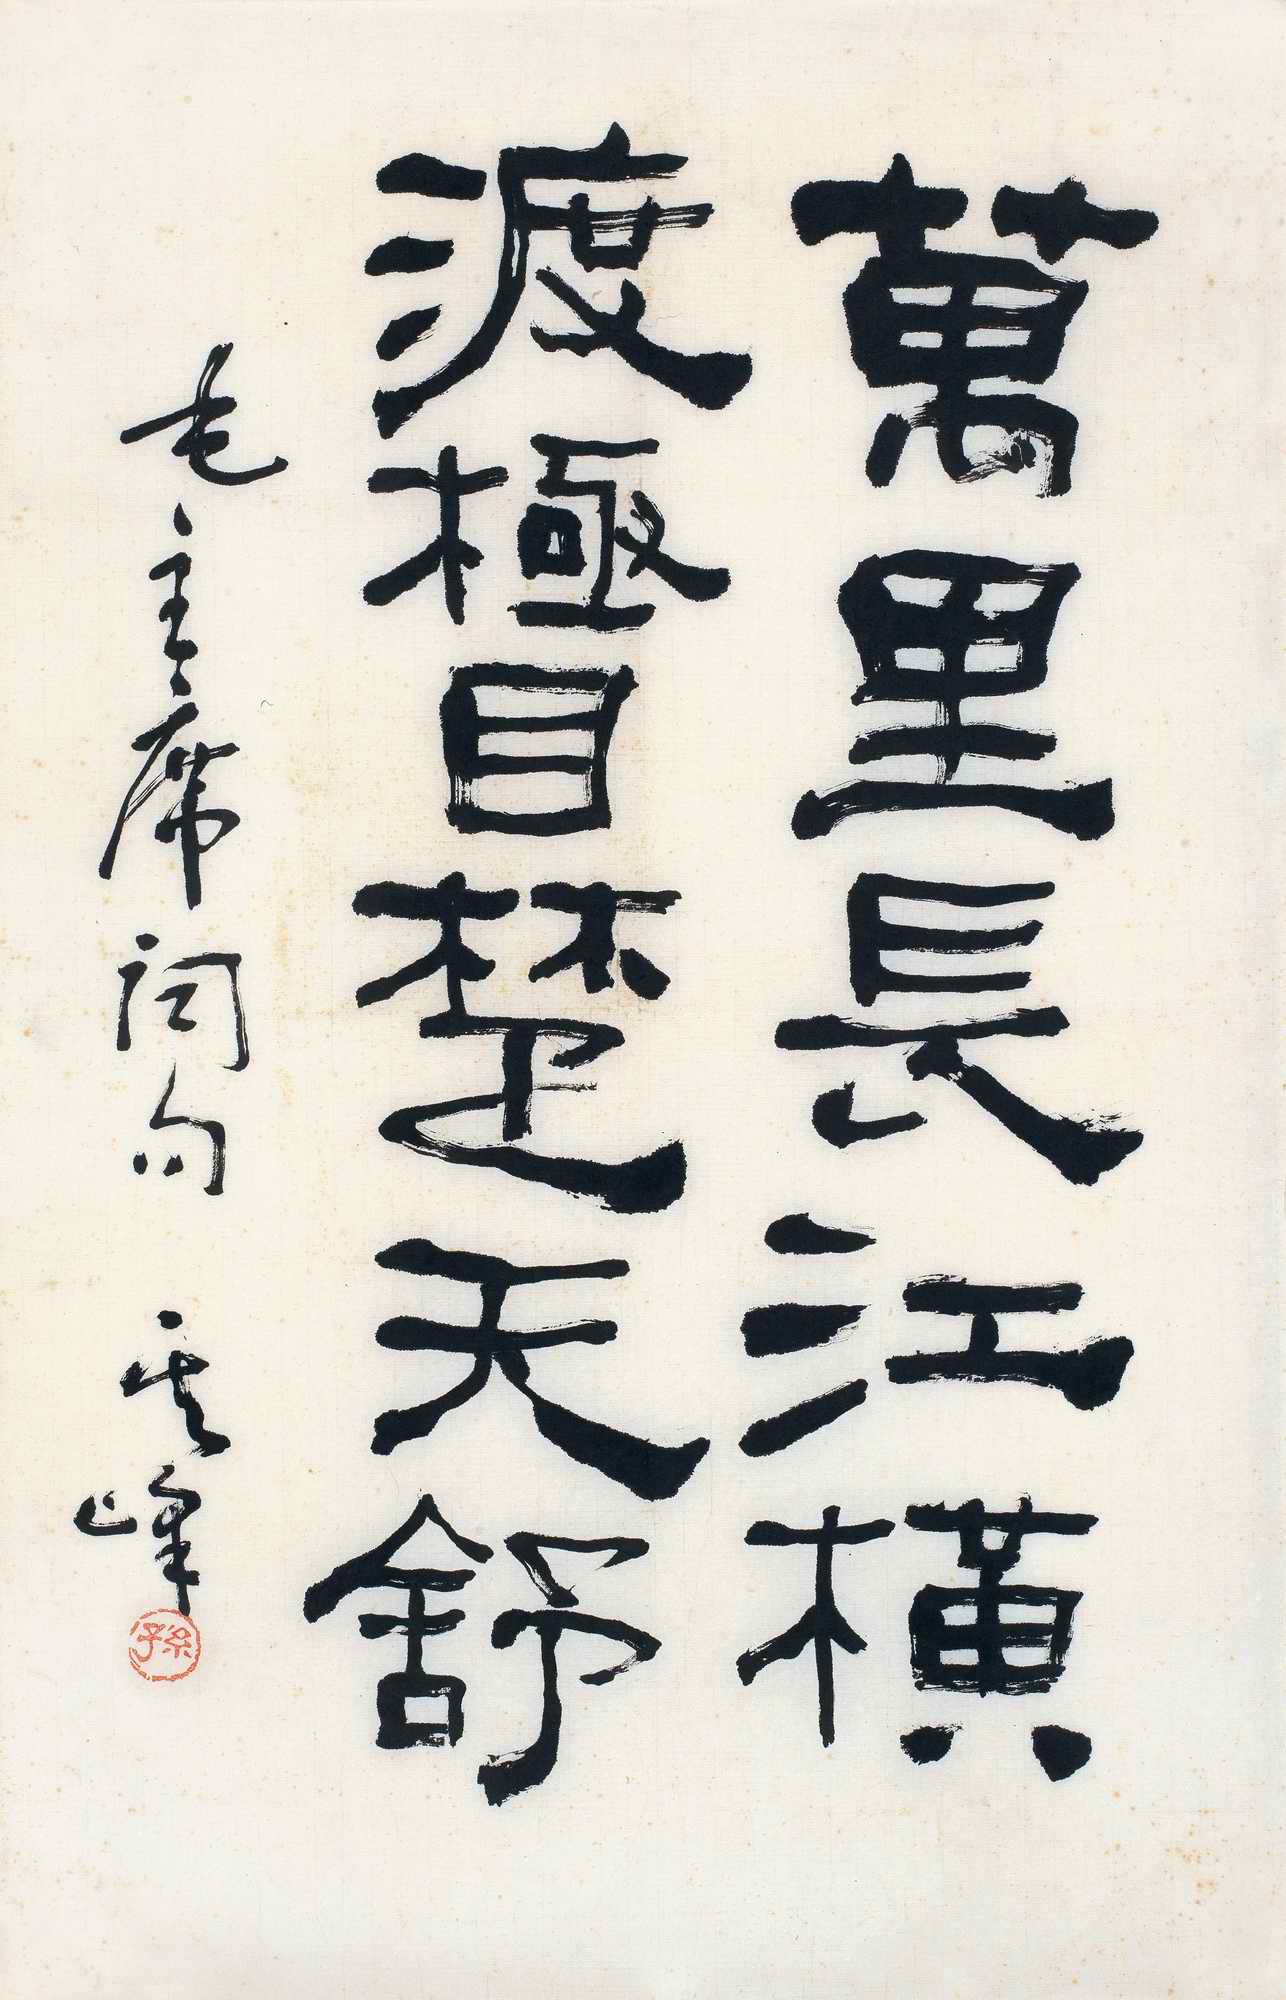 萬里長江橫
渡極目楚天舒
毛主席詞句 其峰
孫